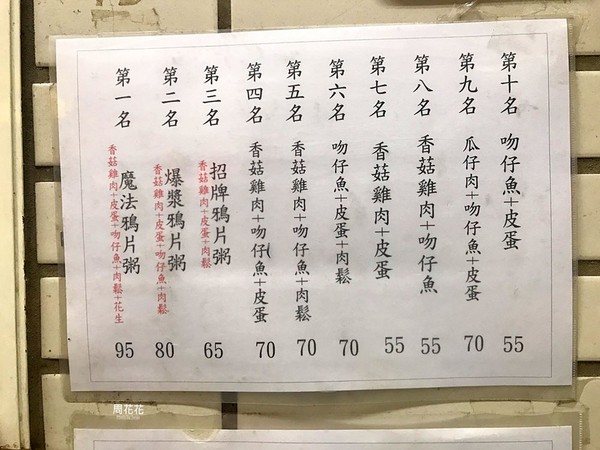 第一名
魔法鴉片粥
香菇雞肉+皮蛋+吻仔魚+肉鬆+花生
95
第二名
爆漿鴉片粥
香菇雞肉+皮蛋+吻仔魚+肉鬆
80
第三名
招牌鴉片粥
香菇雞肉+皮蛋+肉鬆
65
第四名
香菇雞肉+吻仔魚+皮蛋
70
第五名
香菇雞肉+吻仔魚+肉鬆
70
第六名
吻仔魚+皮蛋+肉鬆
70
第七名
香菇雞肉+皮蛋
55
第八名
香菇雞肉+吻仔魚
55
第九名
瓜仔肉+吻仔魚+皮蛋
70
第十名
吻仔魚+皮蛋
55
周花花